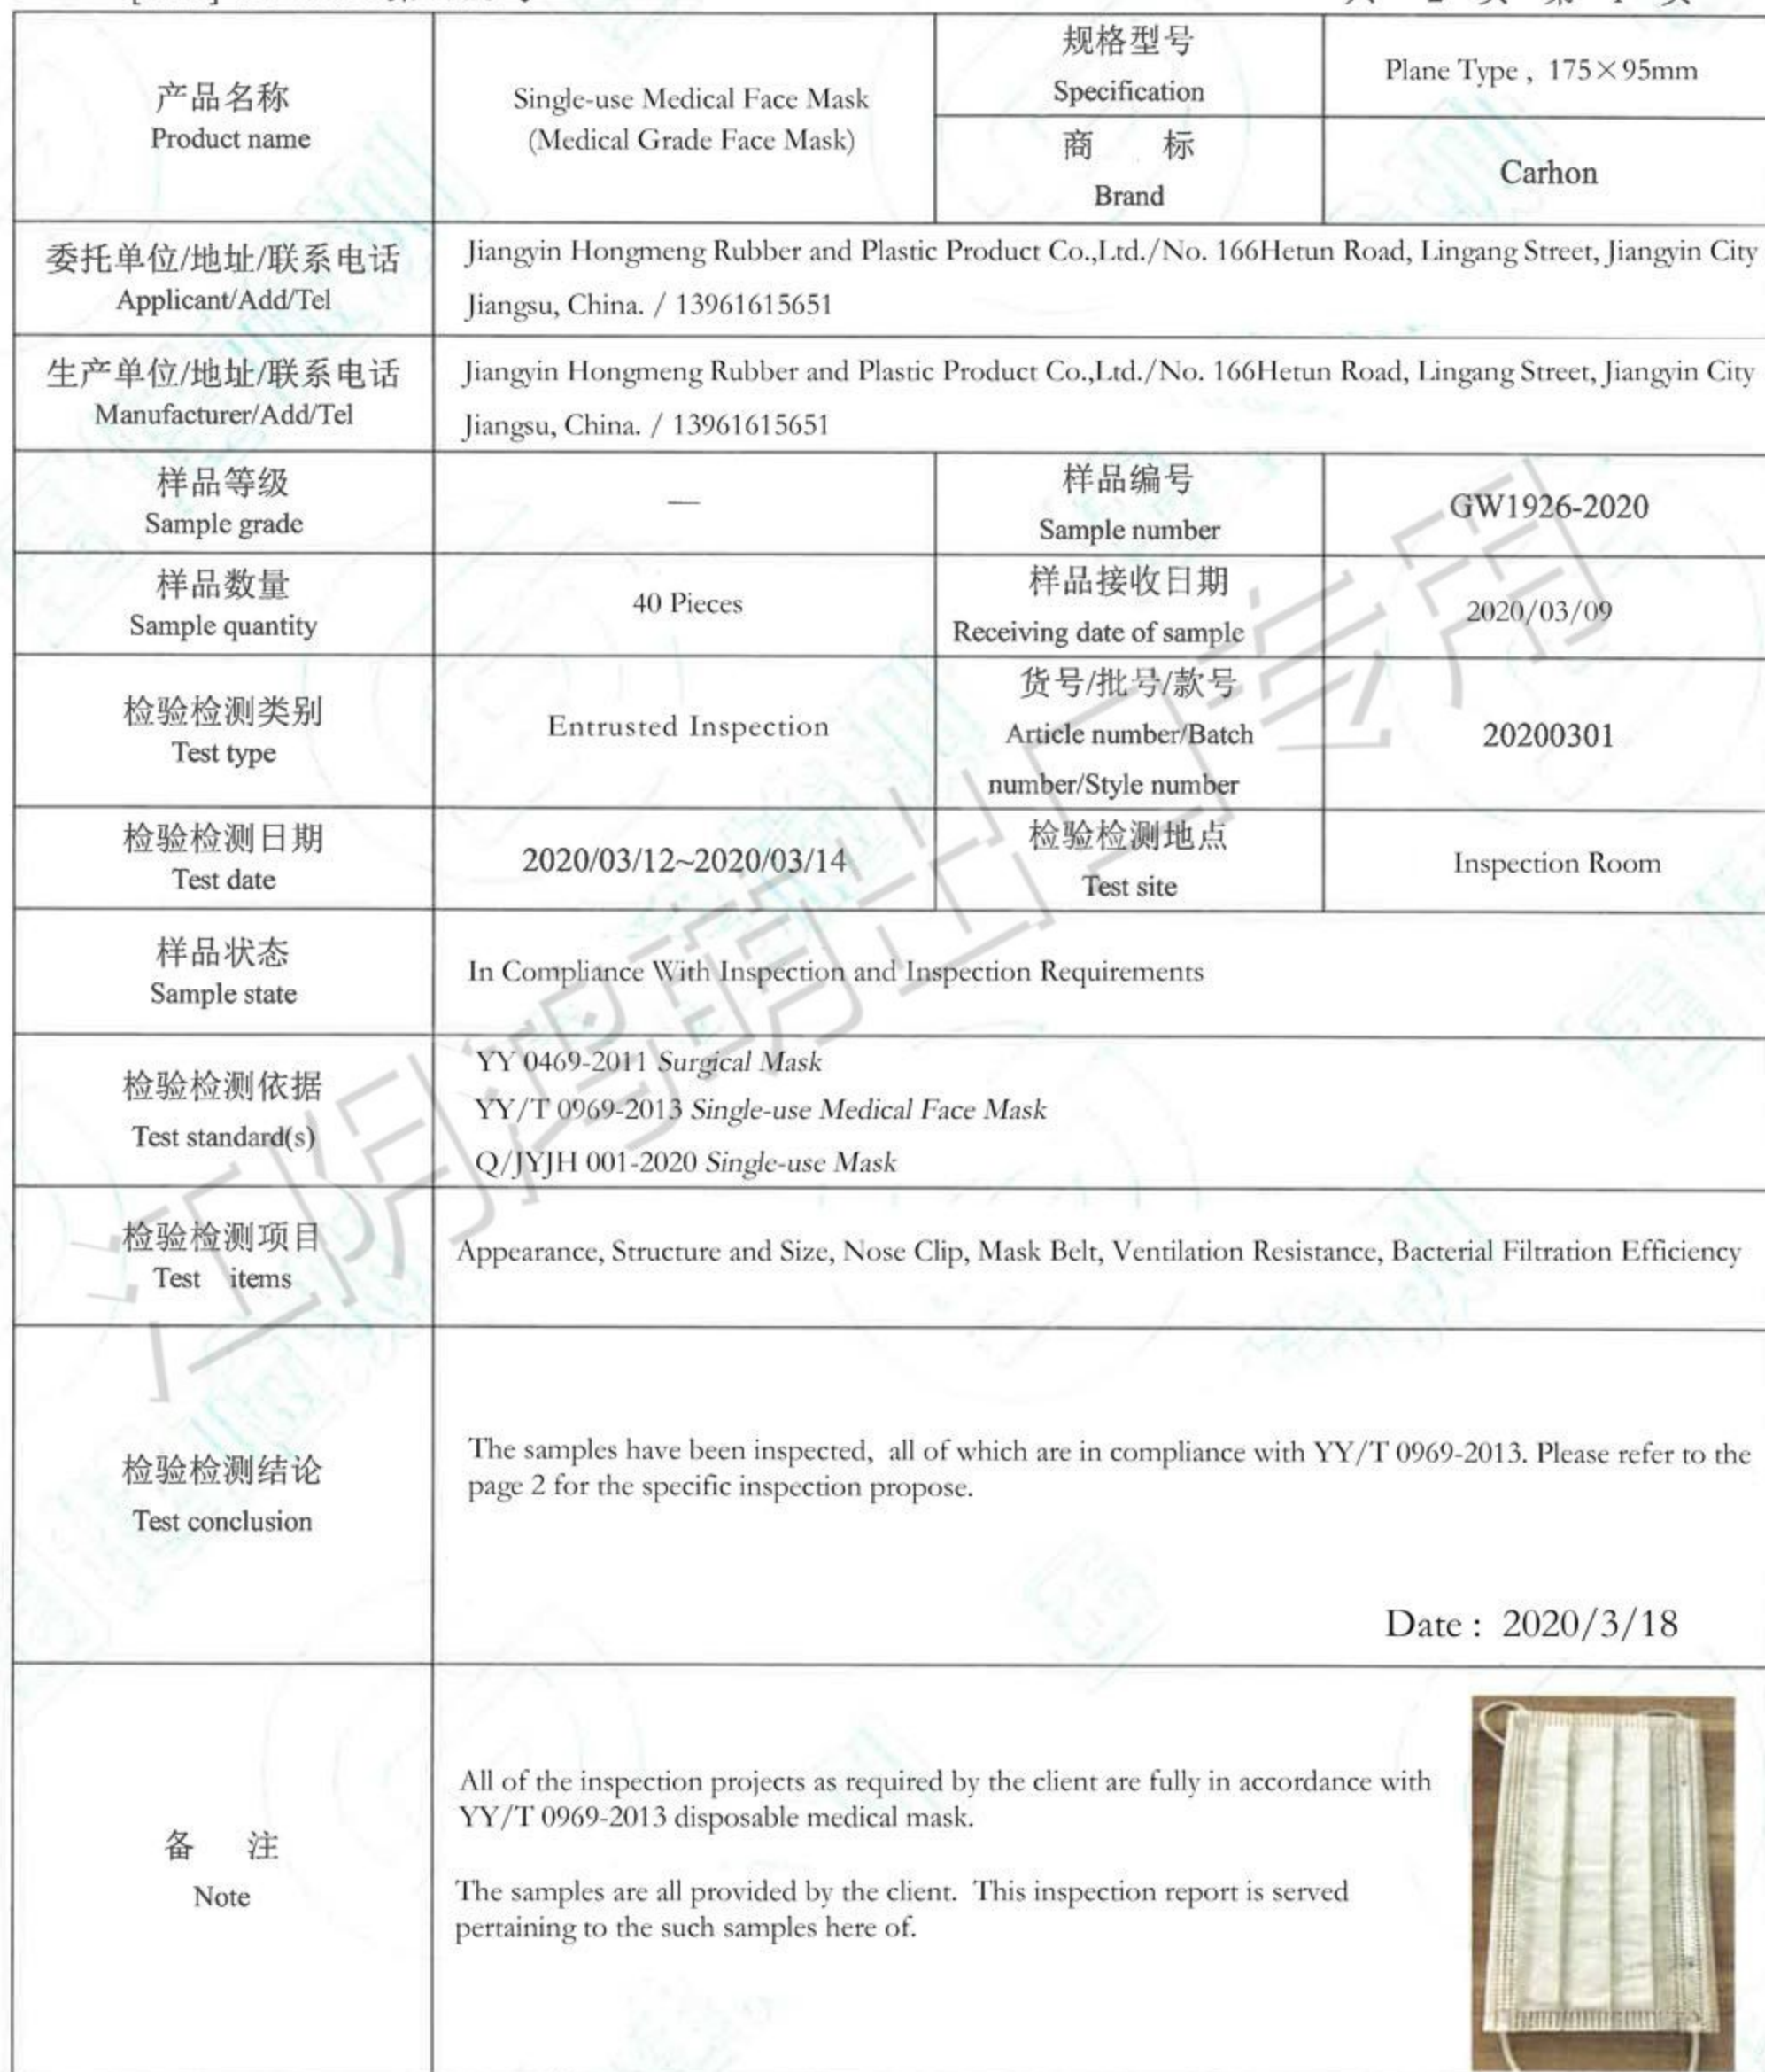 共 2 页 第 1 页
产品名称
Product name
Single-use Medical Face Mask
(Medical Grade Face Mask)
规格型号
Specification
Plane Type , 175×95mm
商 标
Brand
Carhon
委托单位/地址/联系电话
Applicant/Add/Tel
Jiangyin Hongmeng Rubber and Plastic Product Co.,Ltd./No. 166Hetun Road, Lingang Street, Jiangyin City
Jiangsu, China. / 13961615651
生产单位/地址/联系电话
Manufacturer/Add/Tel
Jiangyin Hongmeng Rubber and Plastic Product Co.,Ltd./No. 166Hetun Road, Lingang Street, Jiangyin City
Jiangsu, China. / 13961615651
样品等级
Sample grade
—
样品编号
Sample number
GW1926-2020
样品数量
Sample quantity
40 Pieces
样品接收日期
Receiving date of sample
2020/03/09
检验检测类别
Test type
Entrusted Inspection
货号/批号/款号
Article number/Batch
number/Style number
20200301
检验检测日期
Test date
2020/03/12~2020/03/14
检验检测地点
Test site
Inspection Room
样品状态
Sample state
In Compliance With Inspection and Inspection Requirements
检验检测依据
Test standard(s)
YY 0469-2011 Surgical Mask
YY/T 0969-2013 Single-use Medical Face Mask
Q/JYJH 001-2020 Single-use Mask
检验检测项目
Test items
Appearance, Structure and Size, Nose Clip, Mask Belt, Ventilation Resistance, Bacterial Filtration Efficiency
检验检测结论
Test conclusion
The samples have been inspected, all of which are in compliance with YY/T 0969-2013. Please refer to the
page 2 for the specific inspection propose.
Date : 2020/3/18
备 注
Note
All of the inspection projects as required by the client are fully in accordance with
YY/T 0969-2013 disposable medical mask.
The samples are all provided by the client. This inspection report is served
pertaining to the such samples here of.
江阴鸿萌出口专用